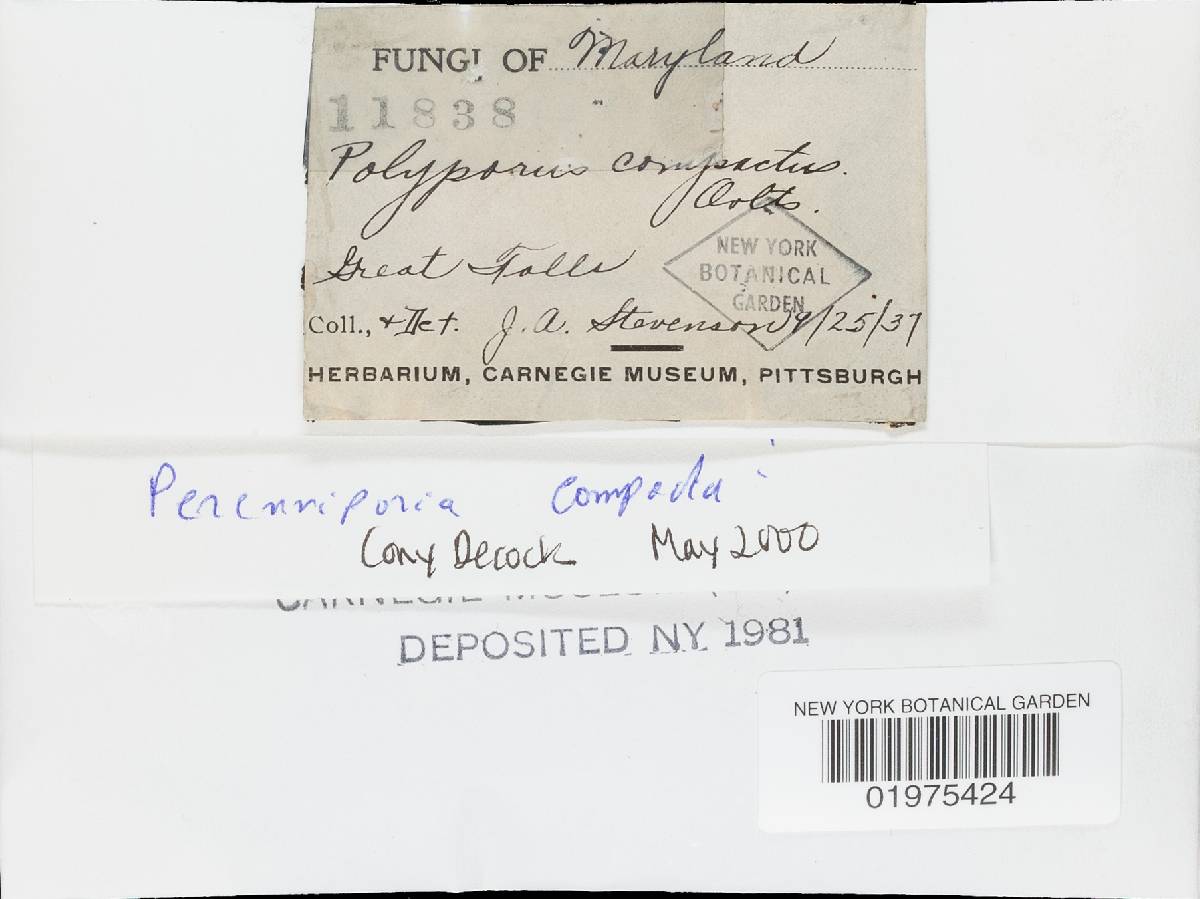 FUNGI OF Maryland
11838
Polyporus compactus.
Ovlts.
Great Falls
NEW YORK
BOTANICAL
GARDEN
Coll., + Det. J. A. Stevenson 9/25/37
HERBARIUM, CARNEGIE MUSEUM, PITTSBURGH
Perenniporia compacta
Cony Decock May 2000
DEPOSITED NY. 1981
NEW YORK BOTANICAL GARDEN
01975424